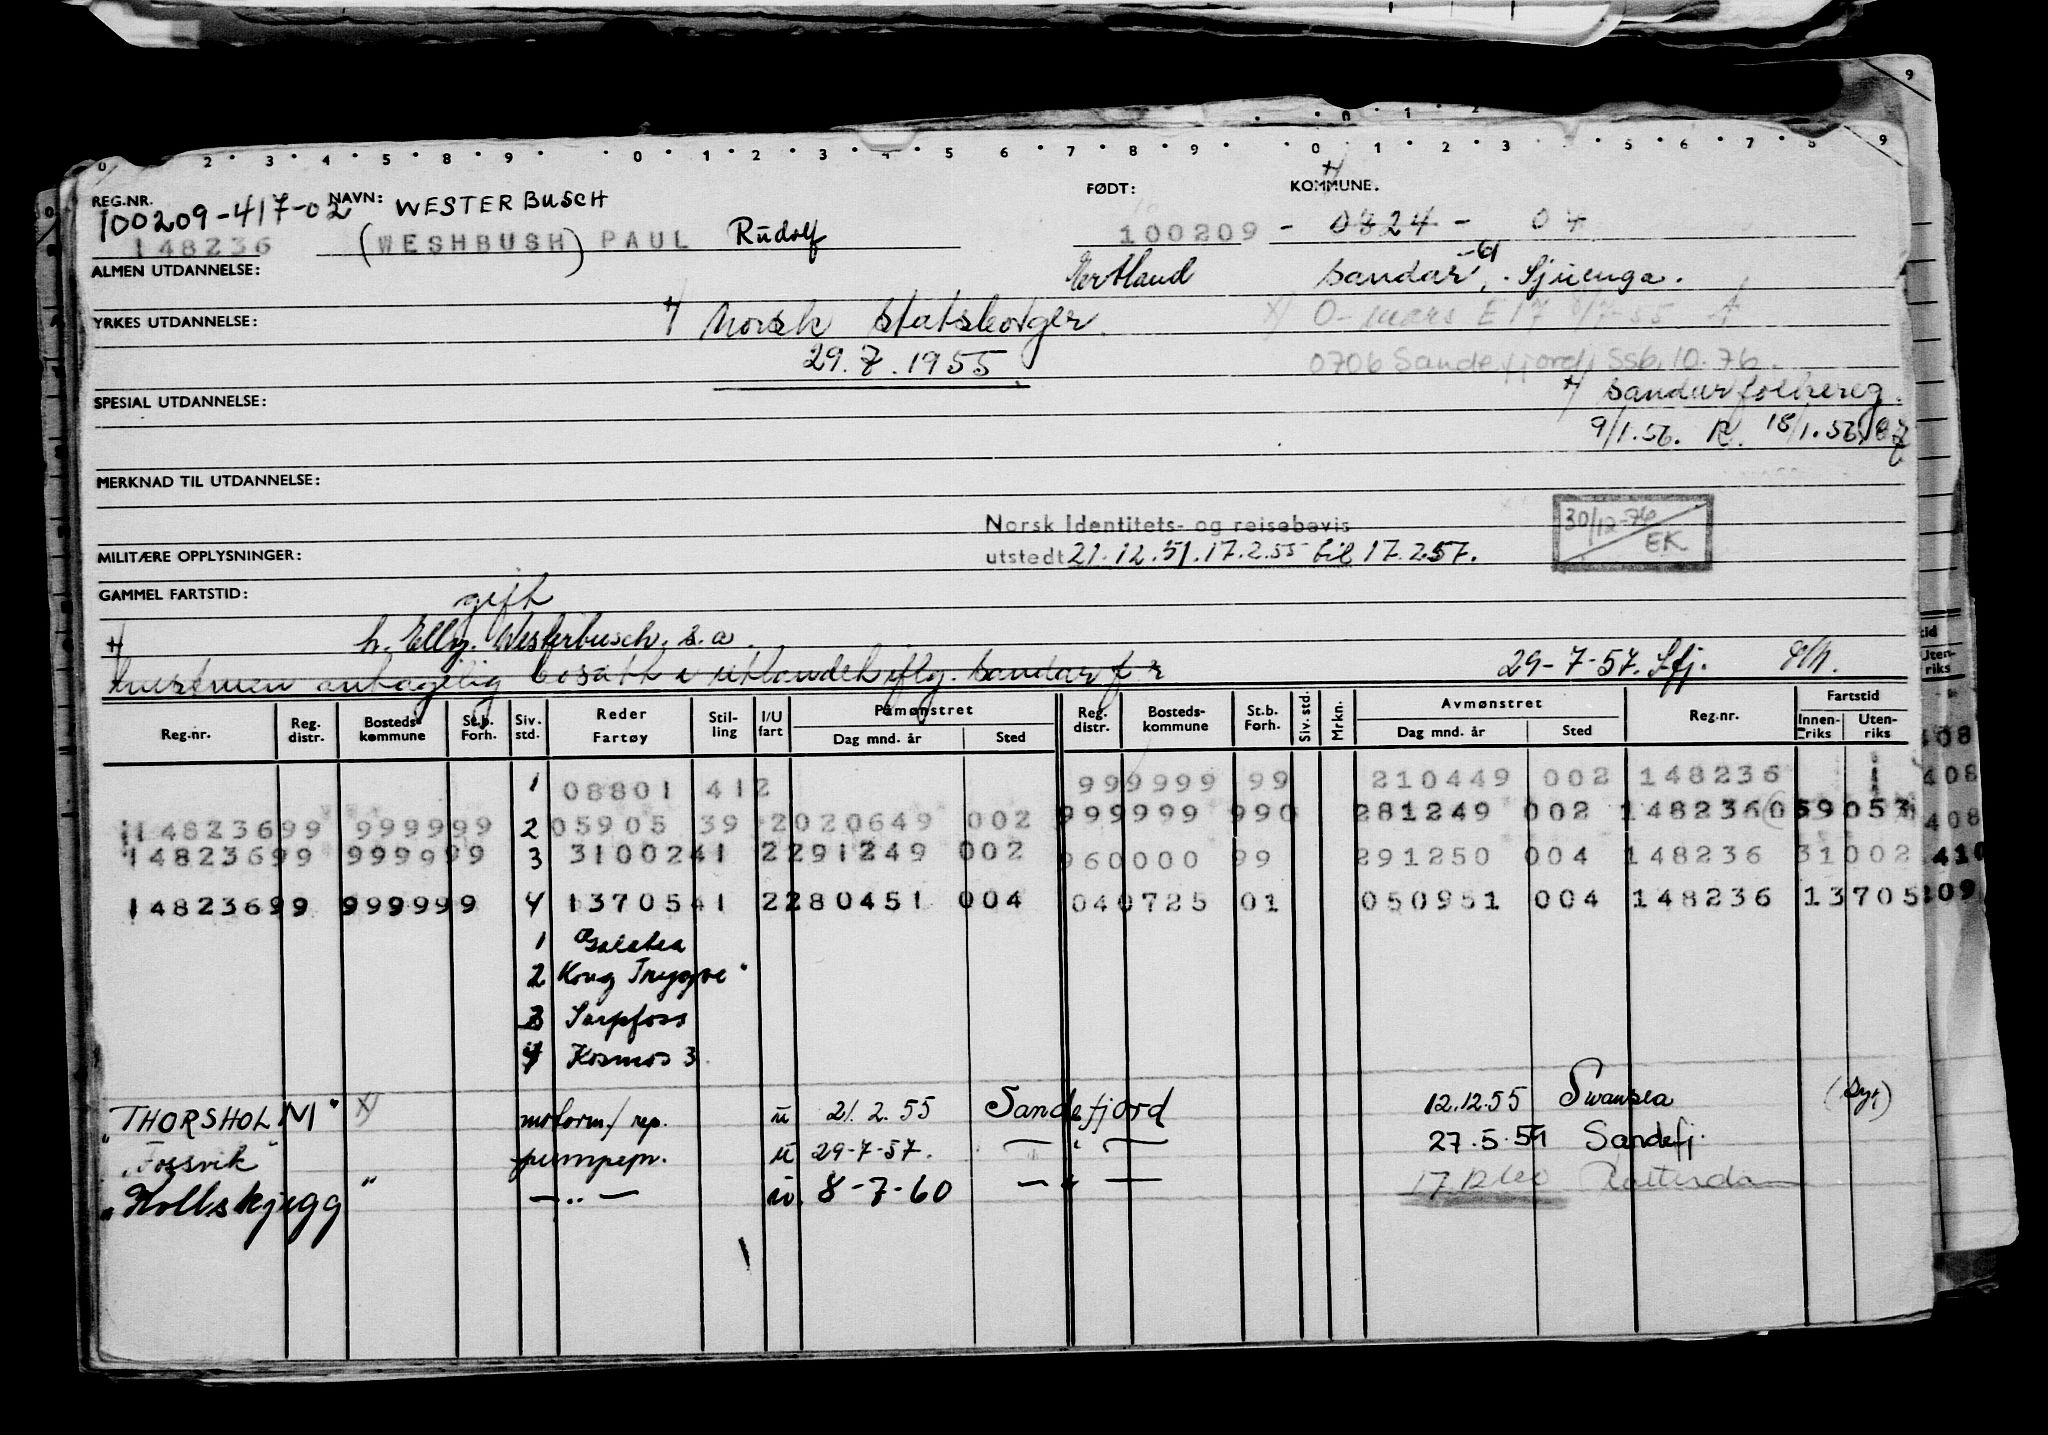 0 2 3 4 5 8 9 0 1 2 3 4 5 6 7 8 9 0 1 2 3 5 6 7 8 9
REG.NR. NAVN: WESTERBUSCH FØDT: KOMMUNE.
100209-417-02
148236 (WESHBUSH) PAUL Rudolf 100209 - 0824 - 04
ALMEN UTDANNELSE: Sandar, -61
YRKES UTDANNELSE: Norsk statsborger
29.7.1955
0706 Sandefjord, Ssb. 10.76.
SPESIAL UTDANNELSE: Sandar folkereg.
9/1.56. R. 18/1.56
MERKNAD TIL UTDANNELSE:
Norsk Identitets- og reisebevis
utstedt 21.12.51. 17.2.55 til 17.2.57.
30/12-76
EK
MILITÆRE OPPLYSNINGER:
GAMMEL FARTSTID:
gift
h. Elly Westerbusch. s.a.
antagelig bosatt i utlandet iflg. Sandar f.r
29-7-57. Sfj.
Reg.nr. Reg. distr. Bosteds- kommune St.b. Forh. Siv. std. Reder Fartøy Stil- ling I/U fart Påmønstret Dag mnd. år Sted Reg. distr. Bosteds- kommune St.b. Forh. Siv. std. Mrkn. Avmønstret Dag mnd. år Sted Reg.nr. Fartstid Innen- riks Uten- riks
1 08801 412 999999 99 210449 002 148236
14823699 999999 2 05905 39 2020649 002 999999 990 281249 002 148236 059053
14823699 999999 3 3100241 2291249 002 960000 99 291250 004 148236 31002
14823699 999999 4 1370541 2280451 004 040725 01 050951 004 148236 13705
1 Galatea
2 Kong Tryggve"
3 Sarpfoss
4 Kosmos 3.
"THORSHOLM" x) motorm/rep. u 21.2.55 Sandefjord 12.12.55 Swansea
"Fossvik" pumpem. u 29-7-57. — " — 27.5.59 Sandefj.
"Kollskjegg" — " — u. 8-7-60 — " — 17.12.60 Rotterdam